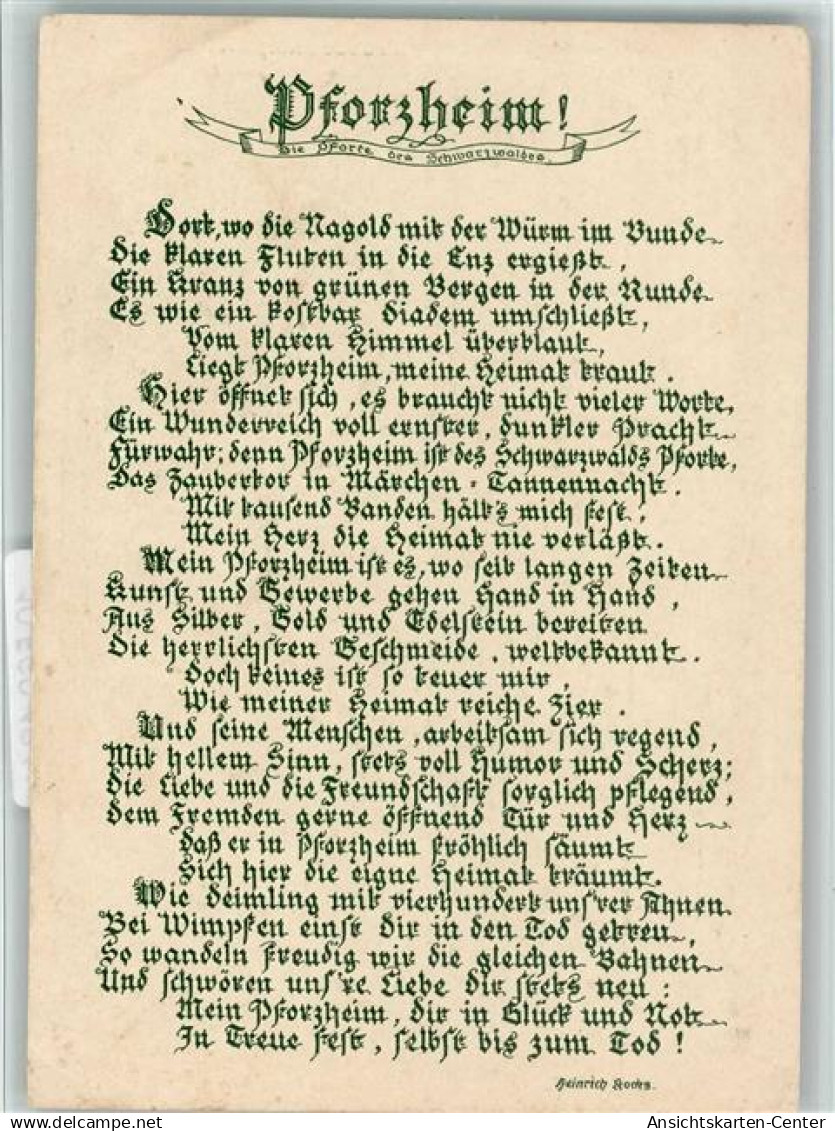 Pforzheim!
Die Pforte des Schwarzwaldes.
Dort, wo die Nagold mit der Würm im Bunde
Die klaren Fluten in die Enz ergießt,
Ein Kranz von grünen Bergen in der Runde
Es wie ein kostbar Diadem umschließt,
Vom klaren Himmel überblaut,
Liegt Pforzheim, meine Heimat traut.
Hier öffnet sich, es braucht nicht vieler Worte,
Ein Wunderreich voll ernster, dunkler Pracht
Fürwahr: denn Pforzheim ist des Schwarzwalds Pforte,
Das Zaubertor in Märchen-Tannennacht.
Mit tausend Banden hält's mich fest,
Mein Herz die Heimat nie verläßt.
Mein Pforzheim ist es, wo seit langen Zeiten
Kunst und Gewerbe gehen Hand in Hand,
Aus Silber, Gold und Edelstein bereiten
Die herrlichsten Geschmeide, weltbekannt.
Doch keines ist so teuer mir,
Wie meiner Heimat reiche Zier.
Und seine Menschen, arbeitsam sich regend,
Mit hellem Sinn, stets voll Humor und Scherz;
Die Liebe und die Freundschaft sorglich pflegend,
dem Fremden gerne öffnend Tür und Herz
Daß er in Pforzheim fröhlich säumt
Sich hier die eigne Heimat träumt.
Wie Deimling mit vierhundert uns'rer Ahnen
Bei Wimpfen einst Dir in den Tod getreu,
So wandeln freudig wir die gleichen Bahnen
Und schwören uns're Liebe Dir stets neu:
Mein Pforzheim, dir in Glück und Not
In Treue fest, selbst bis zum Tod!
Heinrich
Ansichtskarten-Center